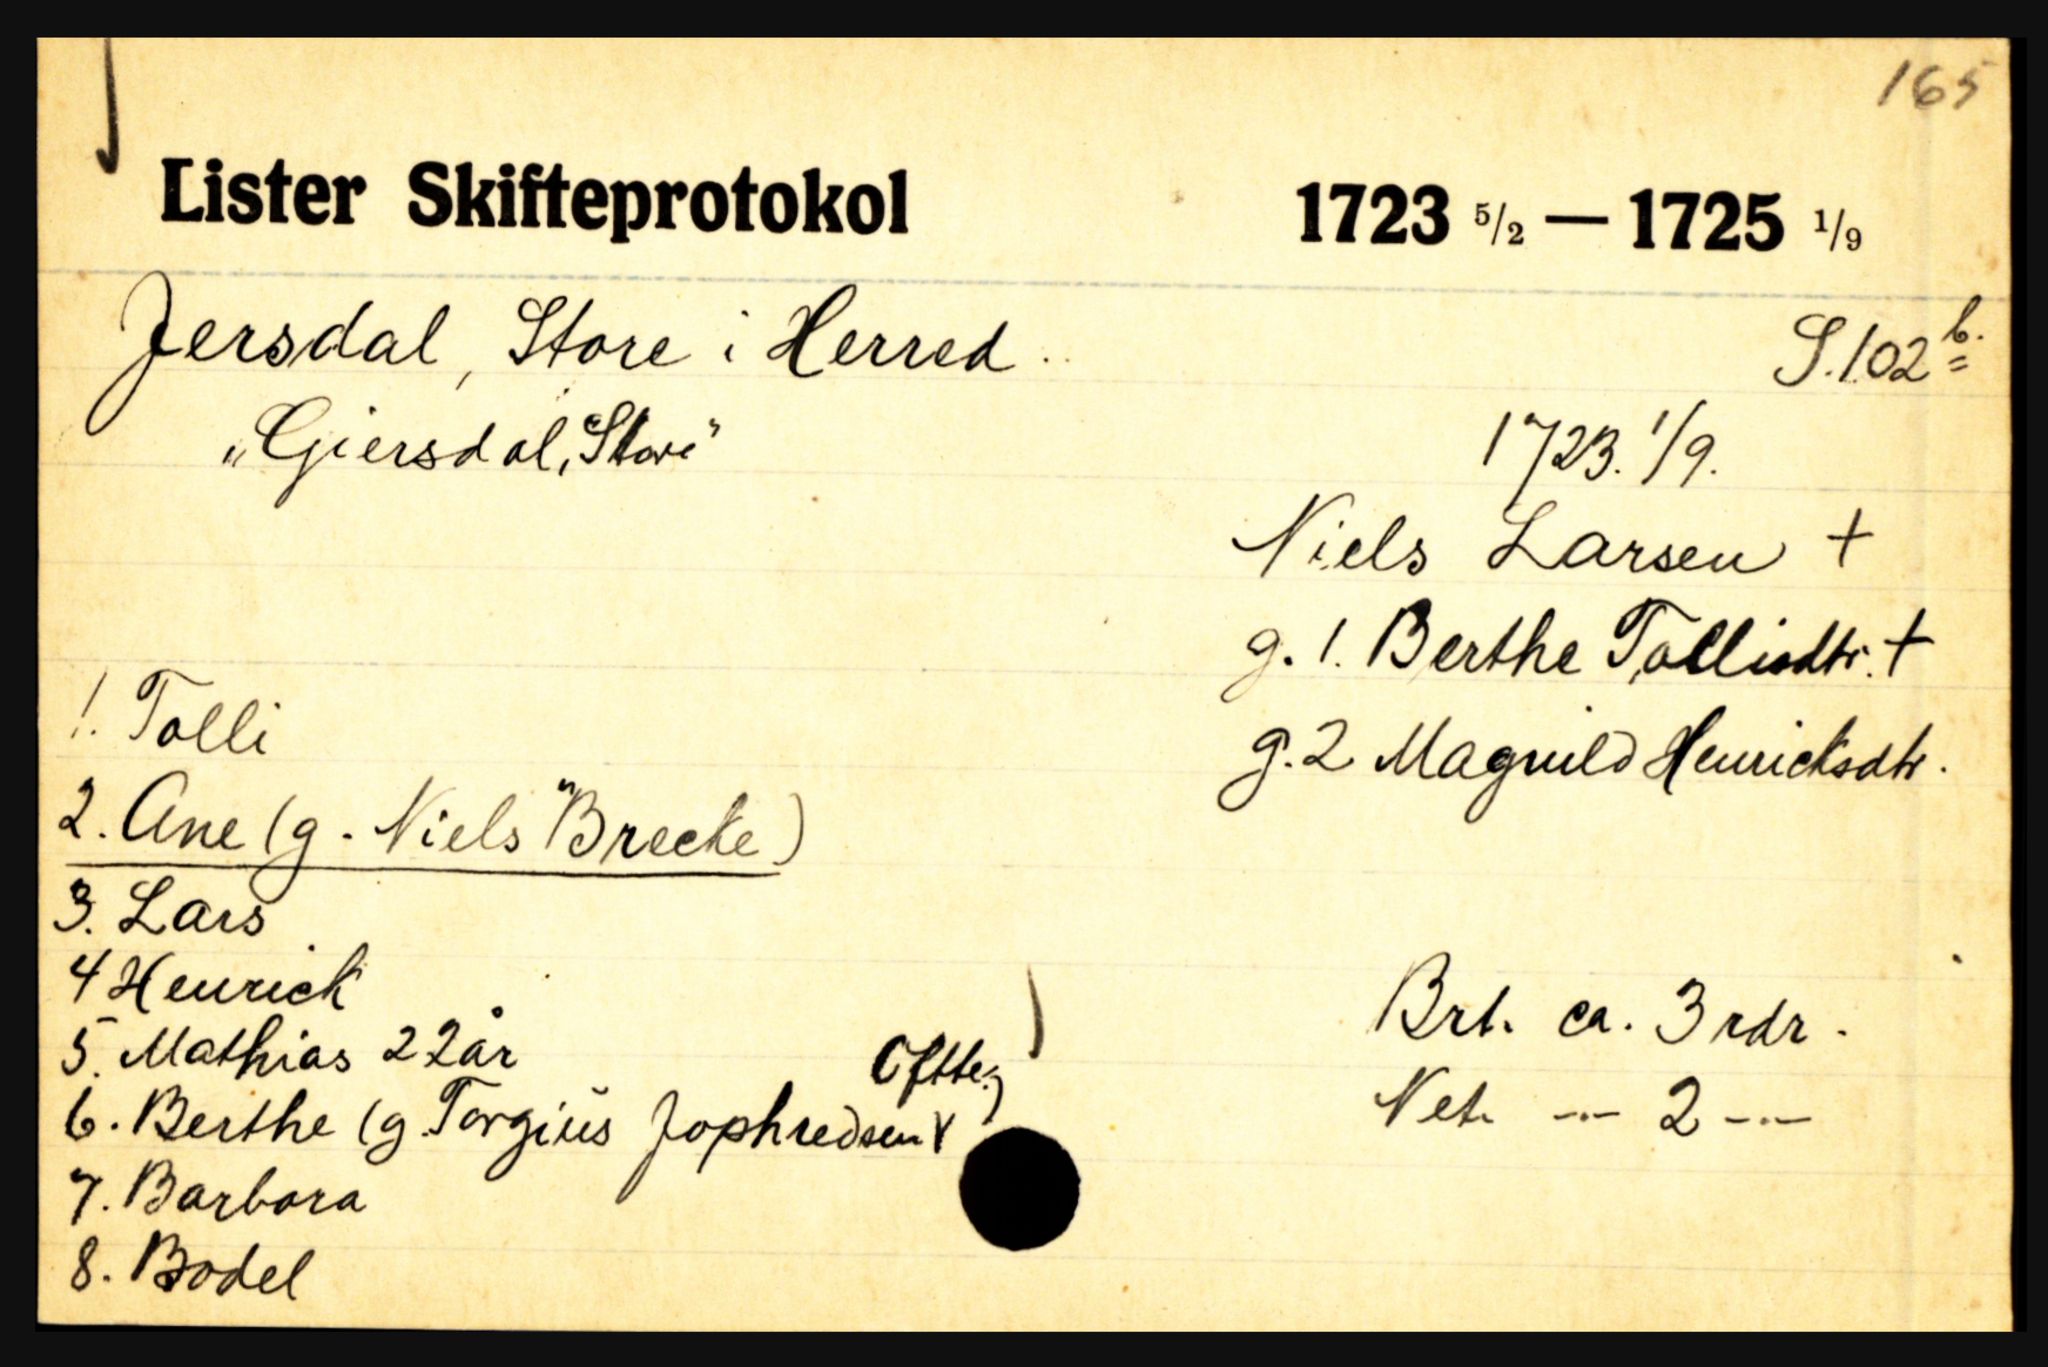 165
Lister Skifteprotokol 1723 5/2 — 1725 1/9
Jersdal, Store i Herred.. S. 102 b.
„Giersdal, Store" 1723. 1/9.
Niels Larsen +
g. 1. Berthe Tollisdtr. +
g. 2 Magnild Henricksdtr.
1. Tolli
2. Ane (g. Niels "Brecke)
3. Lars
4 Henrick
5. Mathias 22 år
6. Berthe (g. Torgius Jophredsen Oftte.)
7. Barbara
8. Bodel
Brt. ca. 3 rdr.
Net. -„- 2 -„-